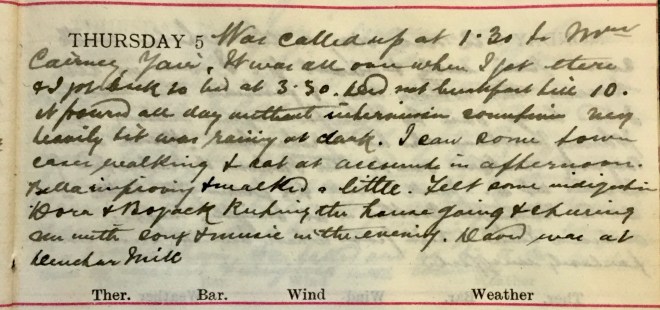 THURSDAY 5 Was called up at 1.30 to Mrs
Cairney Yair. It was all over when I got there
& I got back to bed at 3.30. Did not breakfast till 10.
It poured all day without intermission sometimes very
heavily & it was rainy at dark. I saw some town
cases walking & sat at accounts in afternoon.
Bella improving & walked a little. Felt some indigestion
Dora & Bojack keeping the house going & cheering
me with song & music in the evening. David was at
Deuchar Mill
Ther. Bar. Wind Weather